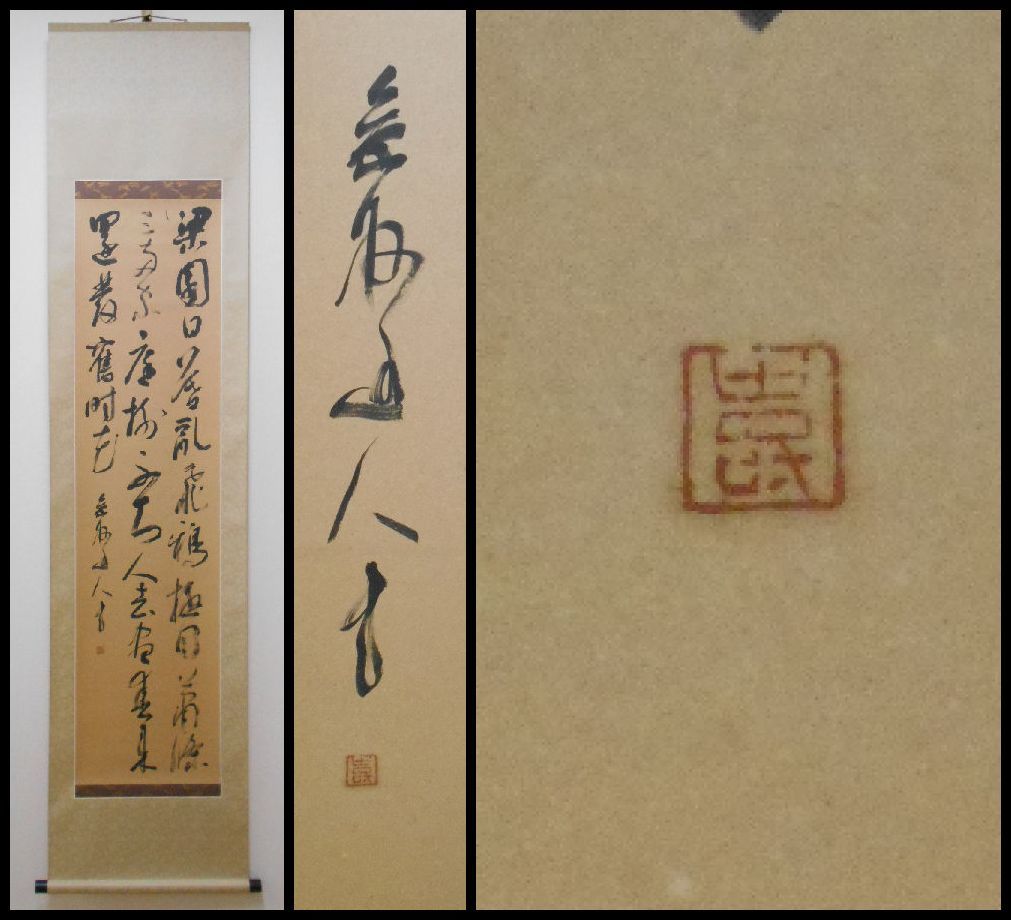 梁園日暮亂飛鴉極目蕭條
三兩家庭樹不知人去盡春來
還發舊時花
道人書